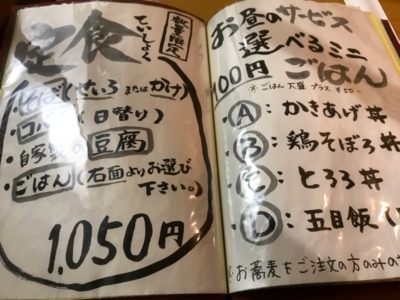 定食
ていしょく
数量限定
・そば(せいろまたはかけ)
(日替り)
・自家製の豆腐
・ごはん(右面よりお選び
下さい。)
1,050円
お昼のサービス
選べるミニ
100円 ごはん
※ごはん大盛 プラス ¥50-
・Ⓐ:かきあげ丼
・Ⓑ:鶏そぼろ丼
・Ⓒ:とろろ丼
・Ⓓ:五目飯
※お蕎麦をご注文の方のみの